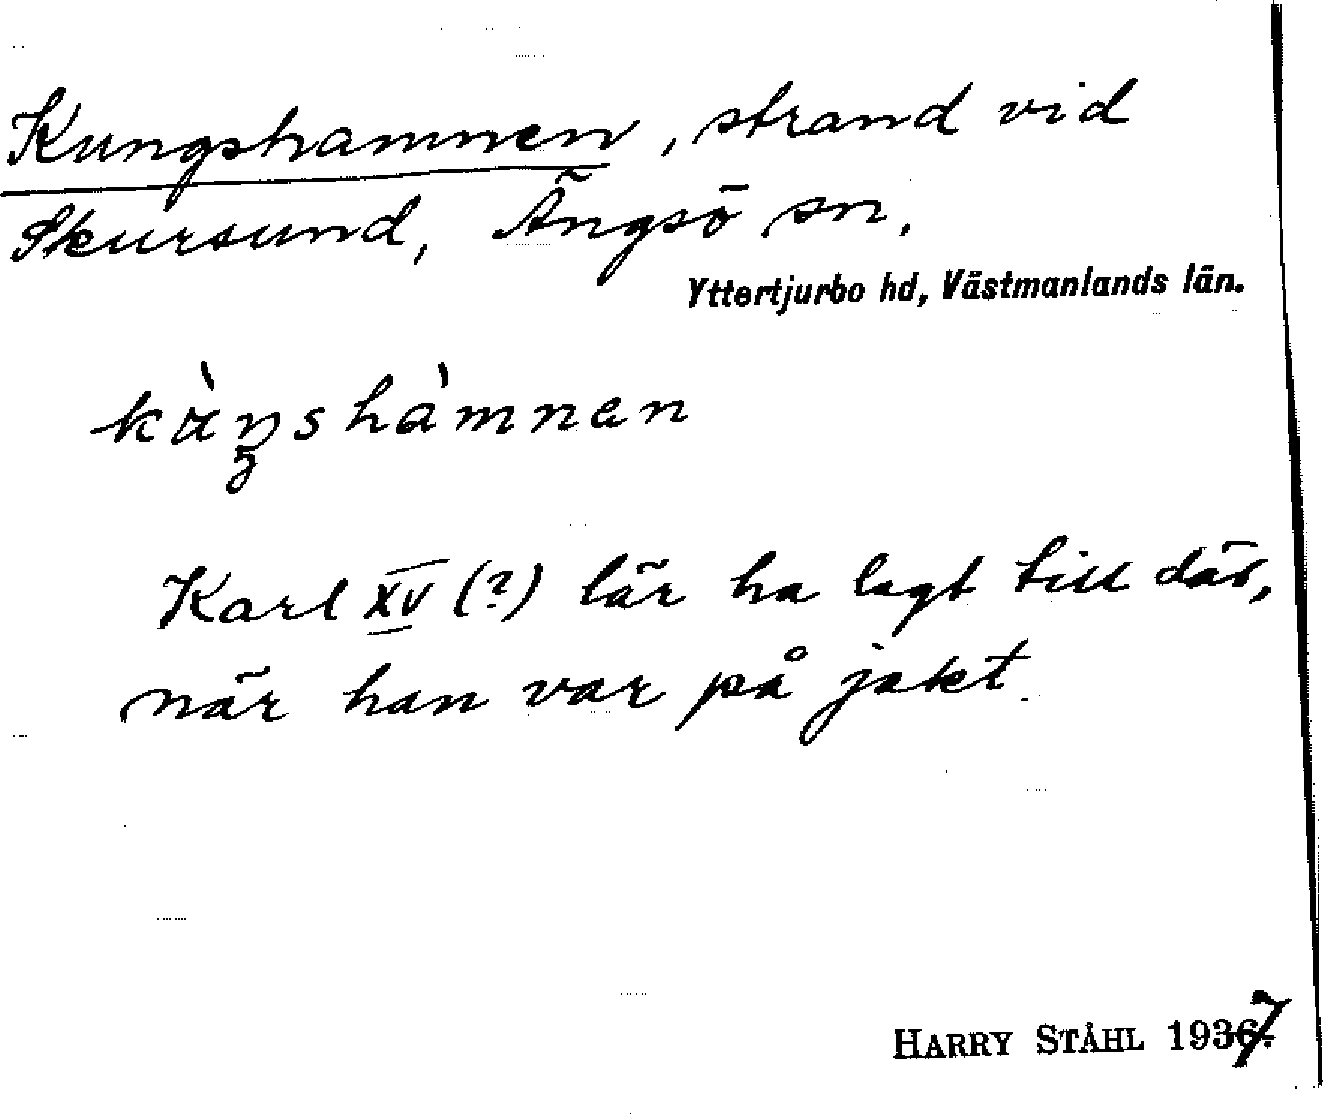 Kungshamnen, strand vid
Skursund, Ängsö sn.
Yttertjurbo hd, Västmanlands län.
Karl XV (?) lär ha lagt till där,
när han var på jakt.
HARRY STÅHL 1937